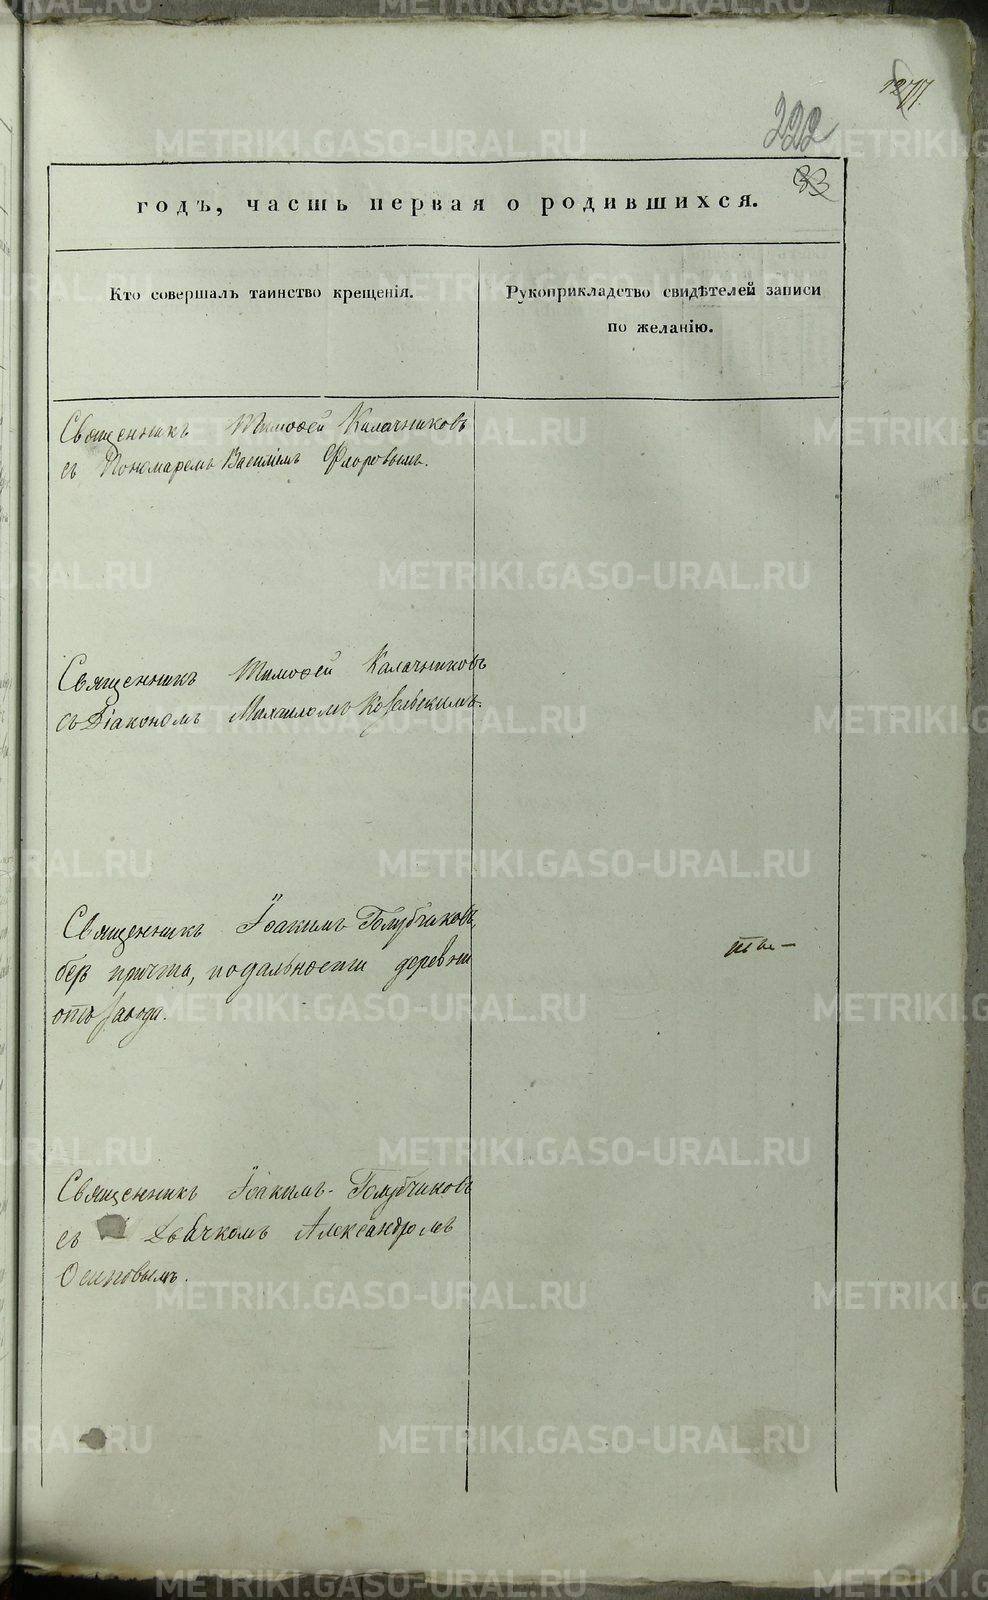 222
33
годъ, часть первая о родившихся.
Кто совершалъ таинство крещенія.
Рукоприкладство свидѣтелей записи
по желанію.
Священникъ Тимоѳей Калачниковъ
съ Пономаремъ Василіемъ Флоровымъ.
Священникъ Тимоѳей Калачниковъ
съ Діакономъ Михаиломъ Козельскимъ.
Священникъ Іоакимъ Голубчиковъ,
безъ причта, по дальности деревни
отъ завода.
Священникъ Іоакимъ Голубчиковъ
съ Дьячкомъ Александромъ
Осиповымъ.
METRIKI.GASO-URAL.RU